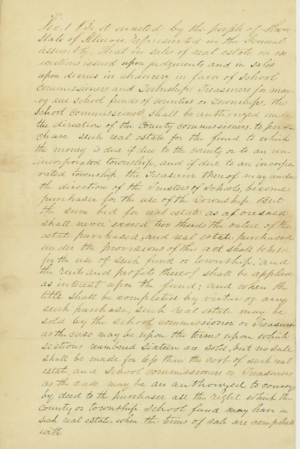 Sec. 1 Be it enacted by the people of the
State of Illinois represented in the General
Assembly, That in sales of real estate on ex-
ecutions issued upon judgments and in sales
upon decrees in chancery in favor of School
Commissioners and Township Treasurers for mon-
ey due school funds of counties or townships, the
School commissioner shall be authorized under
the direction of the County commissioners to pur-
chase such real estate for the fund to which
the money is due if due to the county or to an un-
incorporated township, and if due to an incorpo-
rated township the Treasurer thereof may under
the direction of the Trustees of Schools, become
purchaser for the use of the township But
the sum bid for real estate as aforesaid
shall never exceed two thirds the value of the
estate purchased, and real estate purchased
under the provisions of this act shall be held
for the use of such fund or township, and
the rents and profits thereof shall be applied
as interest upon the fund; and when the
title shall be completed by virtue of any
such purchase, such real estate may be
sold by the school commissioner or Treasurer
as the case may be upon the terms upon which
sections numbered sixteen are sold, but no sale
shall be made for less than the cost of such real
estate and School commissioners or Treasurers
as the case may be are authorized to convey
by deed to the purchaser all the right which the
County or township School fund may have in
such real estate when the terms of sale are complied
with